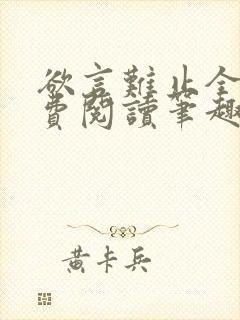 欲言難止全
費閱讀筆趣
黃卡兵